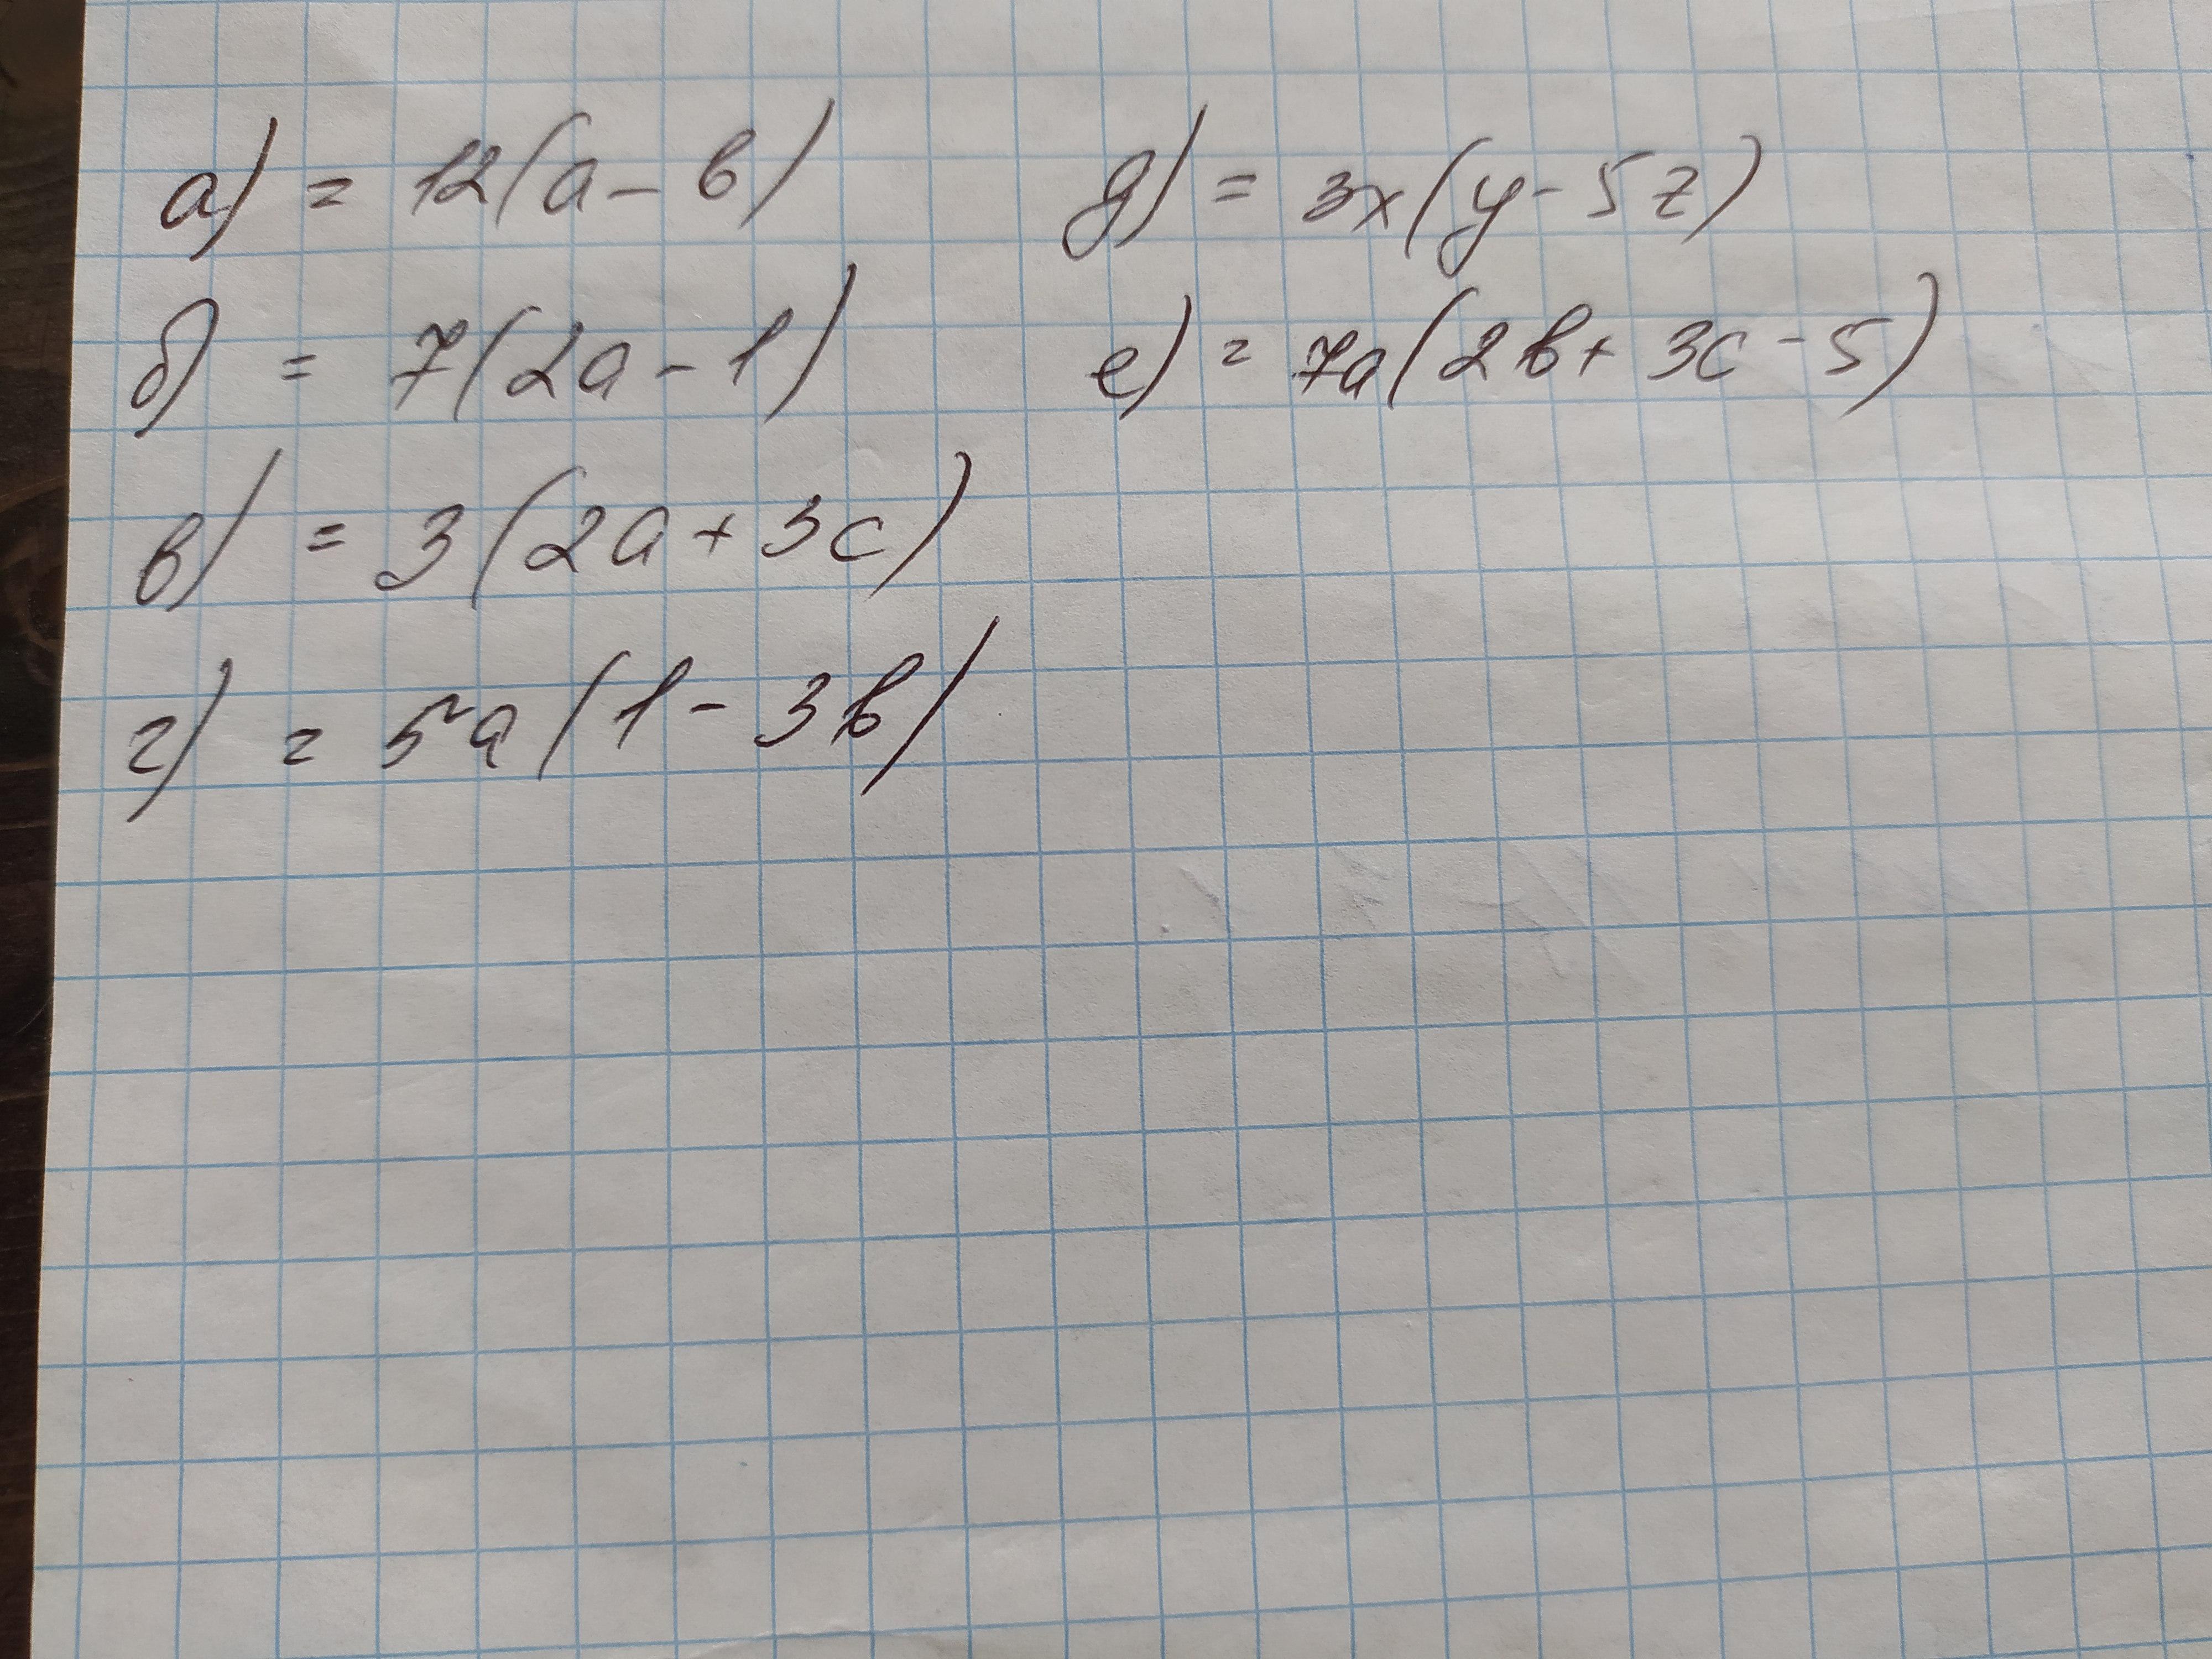 а) = 12(a - b)
б) = 7(2a - 1)
в) = 3(2a + 3c)
г) = 5a(1 - 3b)
д) = 3x(y - 5z)
е) = 7a(2b + 3c - 5)